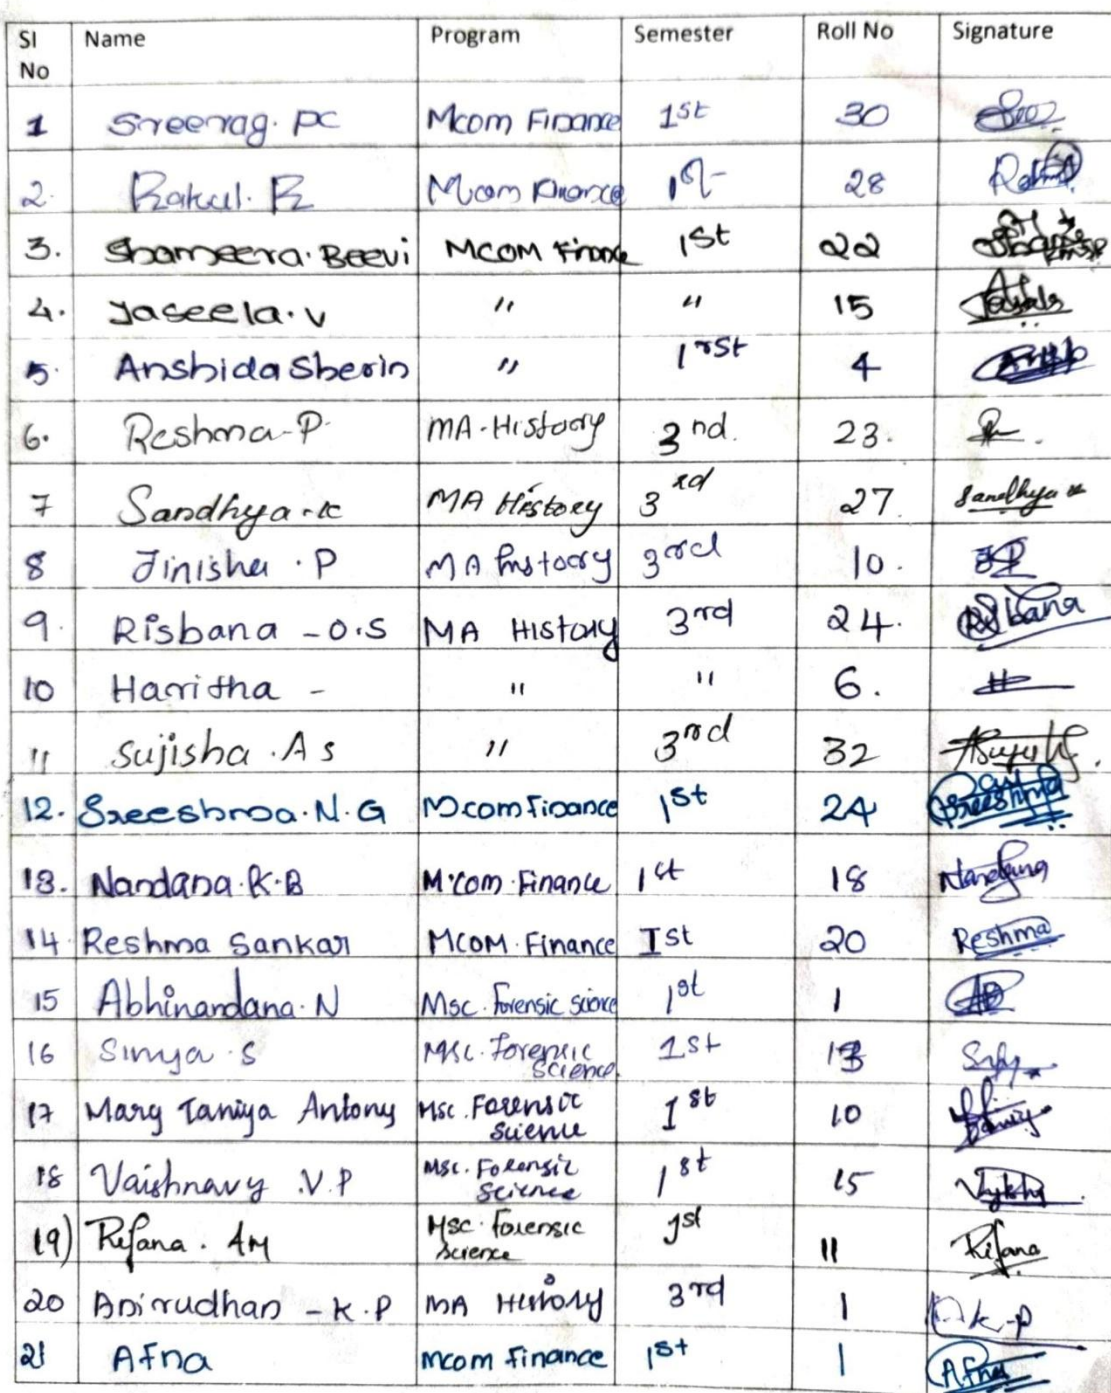 Sl No Name Program Semester Roll No Signature
1 Sreerag. PC Mcom Finance 1st 30
2. Rakul. R Mcom Finance 1st 28
3. Shameera. Beevi MCOM Finance 1st 22
4. Jaseela. V " " 15
5. Anshida Sherin " 1rst 4
6. Reshma-P. MA-History 3nd. 23.
7 Sandhya.K MA History 3rd 27. Sandhya
8 Jinisha .P MA history 3rd 10. JP
9. Risbana - O.S MA History 3rd 24. Risbana
10 Haritha - " " 6. H
11 Sujisha .A s " 3rd 32
12. Sreeshma. N. G Mcom finance 1st 24 Sreeshma
13. Nandana. K. B M.com. Finance 1st 18 Nandana
14 Reshma Sankar MCOM. Finance Ist 20 Reshma
15 Abhinandana. N Msc. forensic science 1st 1
16 Simya . S Msc. Forensic Science. 1st 13
17 Mary Taniya Antony Msc. Forensic Science 1st 10
18 Vaishnavy .V.P Msc. Forensic Science 1st 15
19) Rifana. AM Msc. forensic Science 1st 11 Rifana
20 Anirudhan - K.P MA History 3rd 1 k-p
21 Afna mcom finance 1st 1 Afna